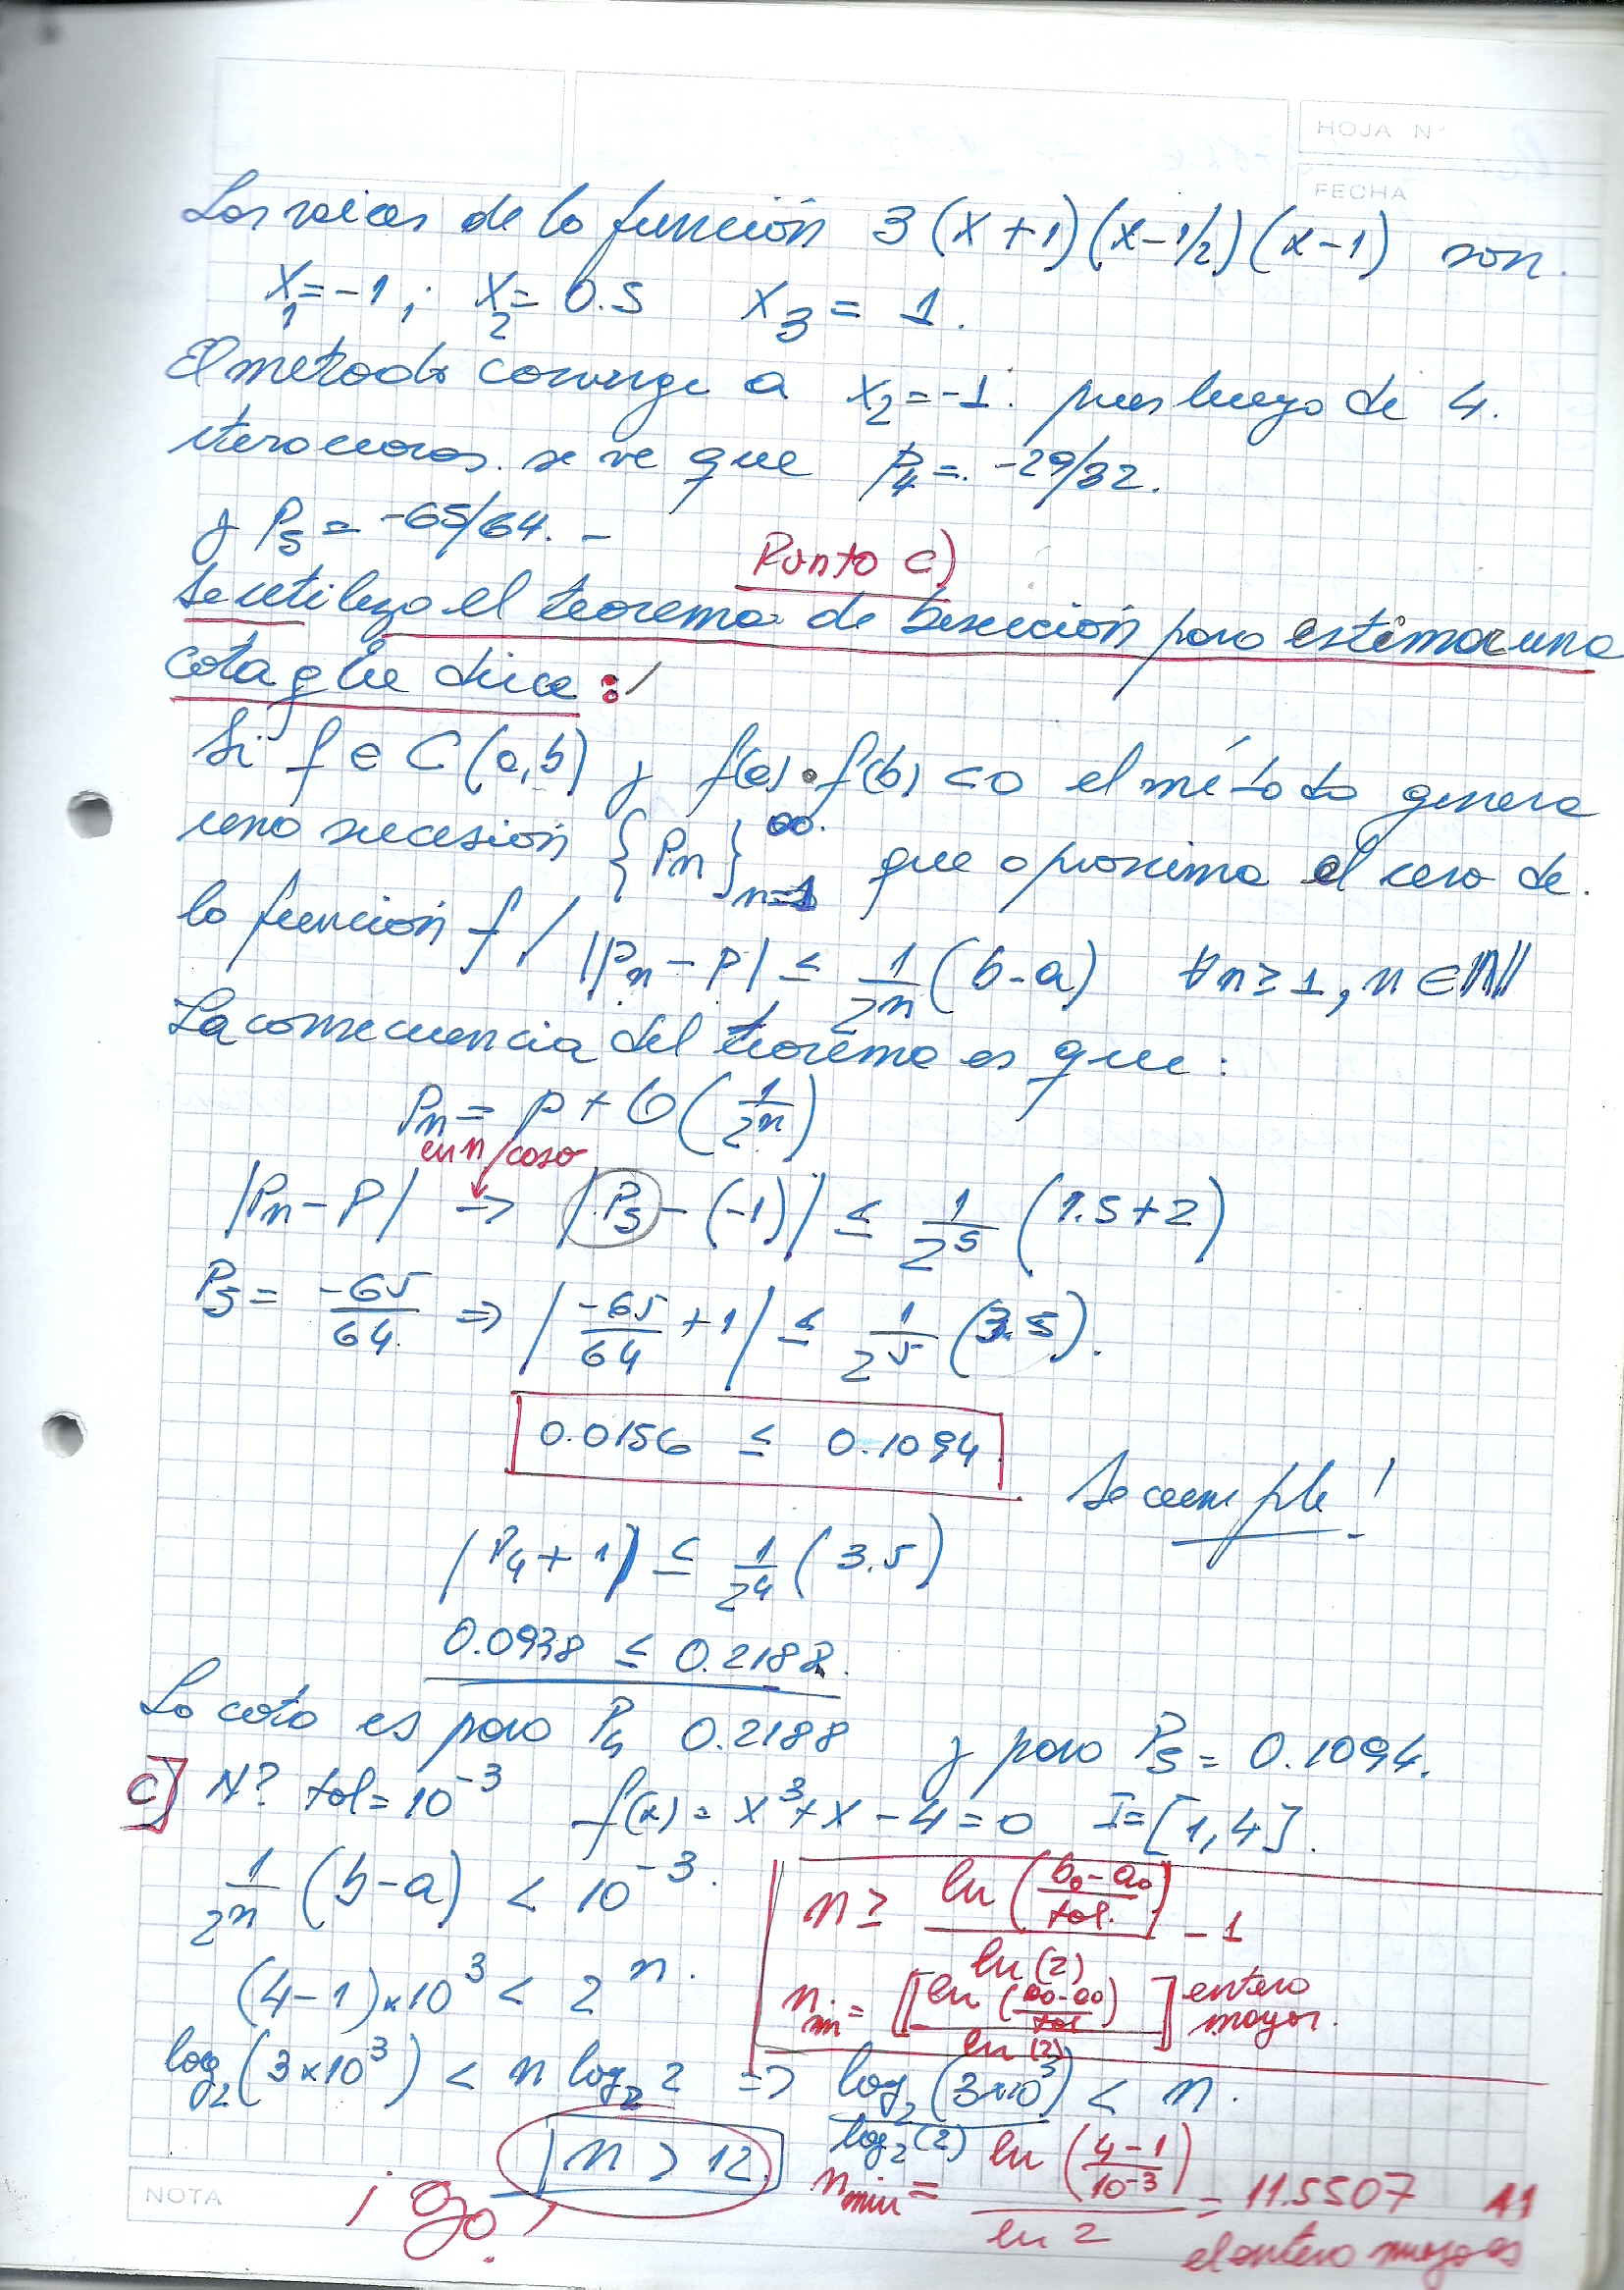 HOJA Nº
FECHA
Las raices de la función 3(x+1)(x-1/2)(x-1) son.
x₁=-1; x₂= 0.5 x₃ = 1.
El metodo converge a x₂=-1. pues luego de 4.
iteraciones se ve que P₄=. -29/32.
y P₅ = -65/64. -
Punto c)
Se utiliza el teorema de bisección para estimar una
cota que dice :
Si f ∈ C(a,b) y f(a)•f(b) <0 el método genera
una sucesión {Pn}_{n=1}^{∞} que aproxima el cero de.
la función f / |Pn - P| ≤ 1/2ⁿ (b-a) ∀n≥1, n∈ℕ
La consecuencia del teorema es que:
Pn = p + O(1/2ⁿ)
en n/caso
|Pn - P| → |P₅ - (-1)| ≤ 1/2⁵ (1.5+2)
P₅ = -65/64 ⇒ |-65/64 + 1| ≤ 1/2⁵ (3.5).
0.0156 ≤ 0.1094
Se cumple!
|P₄ + 1| ≤ 1/2⁴ (3.5)
0.0938 ≤ 0.2188.
La cota es para P₄ 0.2188 y para P₅ = 0.1094.
c] N? tol=10⁻³ f(x) = x³+x-4=0 I=[1,4].
1/2ⁿ (b-a) < 10⁻³.
n ≥ ln((b₀-a₀)/tol.)/ln(2) - 1
(4-1)×10³ < 2ⁿ.
n min = [[ln((b₀-a₀)/tol)/ln(2)]] entero mayor.
log₂(3×10³) < n log₂ 2 ⇒ log₂(3×10³)/log₂(2) < n.
n > 12.
n min = ln((4-1)/10⁻³)/ln 2 = 11.5507 11
¡Ojo!
el entero mayor es
NOTA